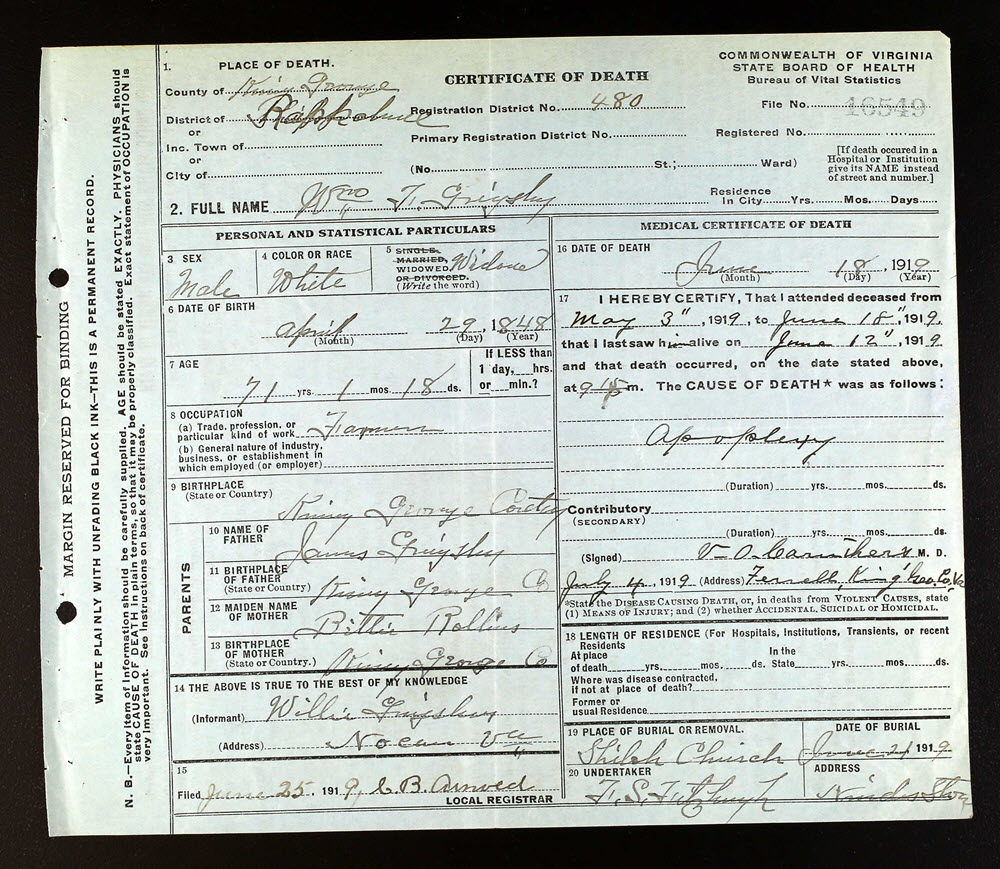 MARGIN RESERVED FOR BINDING
WRITE PLAINLY WITH UNFADING BLACK INK—THIS IS A PERMANENT RECORD.
N. B.—Every item of information should be carefully supplied. AGE should be stated EXACTLY. PHYSICIANS should
state CAUSE OF DEATH in plain terms, so that it may be properly classified. Exact statement of OCCUPATION is
very important. See instructions on back of certificate.
1. PLACE OF DEATH.
County of King George
District of
or
Inc. Town of
or
City of
CERTIFICATE OF DEATH
Registration District No. 480
Primary Registration District No.
(No. St.; Ward)
COMMONWEALTH OF VIRGINIA
STATE BOARD OF HEALTH
Bureau of Vital Statistics
File No. 16549
Registered No.
[If death occured in a
Hospital or Institution
give its NAME instead
of street and number.]
2. FULL NAME Wm F. Grigsby
Residence
In City Yrs. Mos. Days
PERSONAL AND STATISTICAL PARTICULARS
3 SEX
Male
4 COLOR OR RACE
White
5 SINGLE,
MARRIED,
WIDOWED,
OR DIVORCED.
(Write the word)
Widowed
6 DATE OF BIRTH
April 29, 1848
(Month) (Day) (Year)
7 AGE
71 yrs. 1 mos. 18 ds.
If LESS than
1 day, hrs.
or min.?
8 OCCUPATION
(a) Trade, profession, or
particular kind of work Farmer
(b) General nature of industry,
business, or establishment in
which employed (or employer)
9 BIRTHPLACE
(State or Country)
King George County
PARENTS
10 NAME OF
FATHER
James Grigsby
11 BIRTHPLACE
OF FATHER
(State or Country)
King George Co
12 MAIDEN NAME
OF MOTHER
Bittie Rollins
13 BIRTHPLACE
OF MOTHER
(State or Country.)
King George Co
14 THE ABOVE IS TRUE TO THE BEST OF MY KNOWLEDGE
(Informant) Willie Grigsby
(Address) Va
15
Filed June 25, 1919, C. B.
LOCAL REGISTRAR
MEDICAL CERTIFICATE OF DEATH
16 DATE OF DEATH
June 18, 1919
(Month) (Day) (Year)
17 I HEREBY CERTIFY, That I attended deceased from
May 3", 1919, to June 18", 1919.
that I last saw him alive on June 12", 1919
and that death occurred, on the date stated above,
at m. The CAUSE OF DEATH* was as follows:
Apoplexy
(Duration) yrs. mos. ds.
Contributory
(SECONDARY)
(Duration) yrs. mos. ds.
(Signed) V. O. Caruthers M. D.
July 4, 1919 (Address) Ferrell King Geo. Co. Va
*State the DISEASE CAUSING DEATH, or, in deaths from VIOLENT CAUSES, state
(1) MEANS OF INJURY; and (2) whether ACCIDENTAL, SUICIDAL or HOMICIDAL.
18 LENGTH OF RESIDENCE (For Hospitals, Institutions, Transients, or recent
Residents
At place In the
of death yrs. mos. ds. State yrs. mos. ds.
Where was disease contracted,
if not at place of death?
Former or
usual Residence
19 PLACE OF BURIAL OR REMOVAL.
Shiloh Church
DATE OF BURIAL
June 21 1919
20 UNDERTAKER
T. S. Fitzhugh
ADDRESS